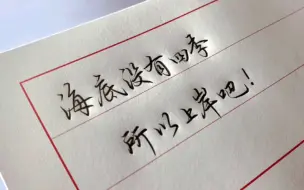 海底没有四季
所以上岸吧!